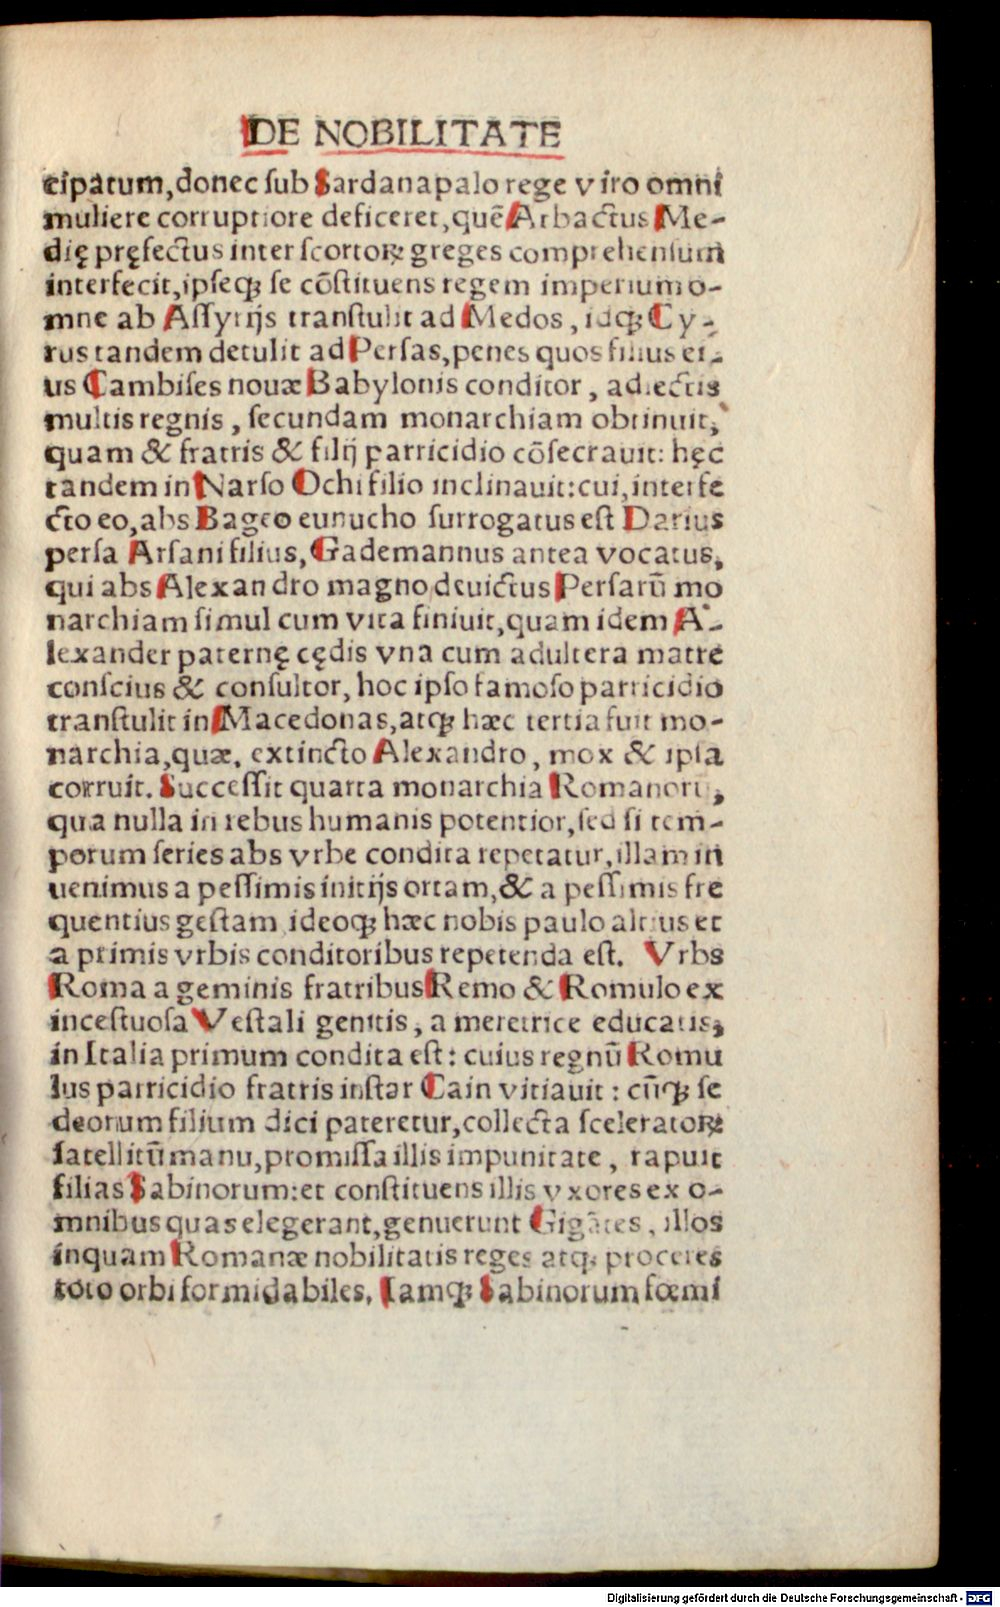 DE NOBILITATE
cipatum, donec ſub Sardanapalo rege viro omni
muliere corruptiore deficeret, quẽ Arbactus Me-
dię pręfectus inter ſcortoꝝ greges comprehenſum
interfecit, ipſeqꝫ ſe cõſtituens regem imperium o-
mne ab Aſſyrijs tranſtulit ad Medos, idqꝫ Cy-
rus tandem detulit ad Perſas, penes quos filius ei-
us Cambiſes nouæ Babylonis conditor, adiectis
multis regnis, ſecundam monarchiam obtinuit,
quam & fratris & filij parricidio cõſecrauit: hęc
tandem in Narſo Ochi filio inclinauit: cui, interfe
cto eo, abs Bageo eunucho ſurrogatus eſt Darius
perſa Arſani filius, Gademannus antea vocatus,
qui abs Alexandro magno deuictus Perſarũ mo
narchiam ſimul cum vita finiuit, quam idem A-
lexander paternę cędis vna cum adultera matre
conſcius & conſultor, hoc ipſo famoſo parricidio
tranſtulit in Macedonas, atqꝫ hæc tertia fuit mo-
narchia, quæ, extincto Alexandro, mox & ipſa
corruit. Succeſſit quarta monarchia Romanorũ,
qua nulla in rebus humanis potentior, ſed ſi tem-
porum ſeries abs vrbe condita repetatur, illam in
uenimus a peſſimis initijs ortam, & a peſſimis fre
quentius geſtam ideoqꝫ hæc nobis paulo altius et
a primis vrbis conditoribus repetenda eſt. Vrbs
Roma a geminis fratribus Remo & Romulo ex
inceſtuoſa Veſtali genitis, a meretrice educatis,
in Italia primum condita eſt: cuius regnũ Romu
lus parricidio fratris inſtar Cain vitiauit: cũqꝫ ſe
deorum filium dici pateretur, collecta ſceleratoꝝ
ſatellitũ manu, promiſſa illis impunitate, rapuit
filias Sabinorum: et conſtituens illis vxores ex o-
mnibus quas elegerant, genuerunt Gigãtes, illos
inquam Romanæ nobilitatis reges atqꝫ proceres
toto orbi formidabiles. Iamqꝫ Sabinorum fœmi
Digitalisierung gefördert durch die Deutsche Forschungsgemeinschaft - DFG